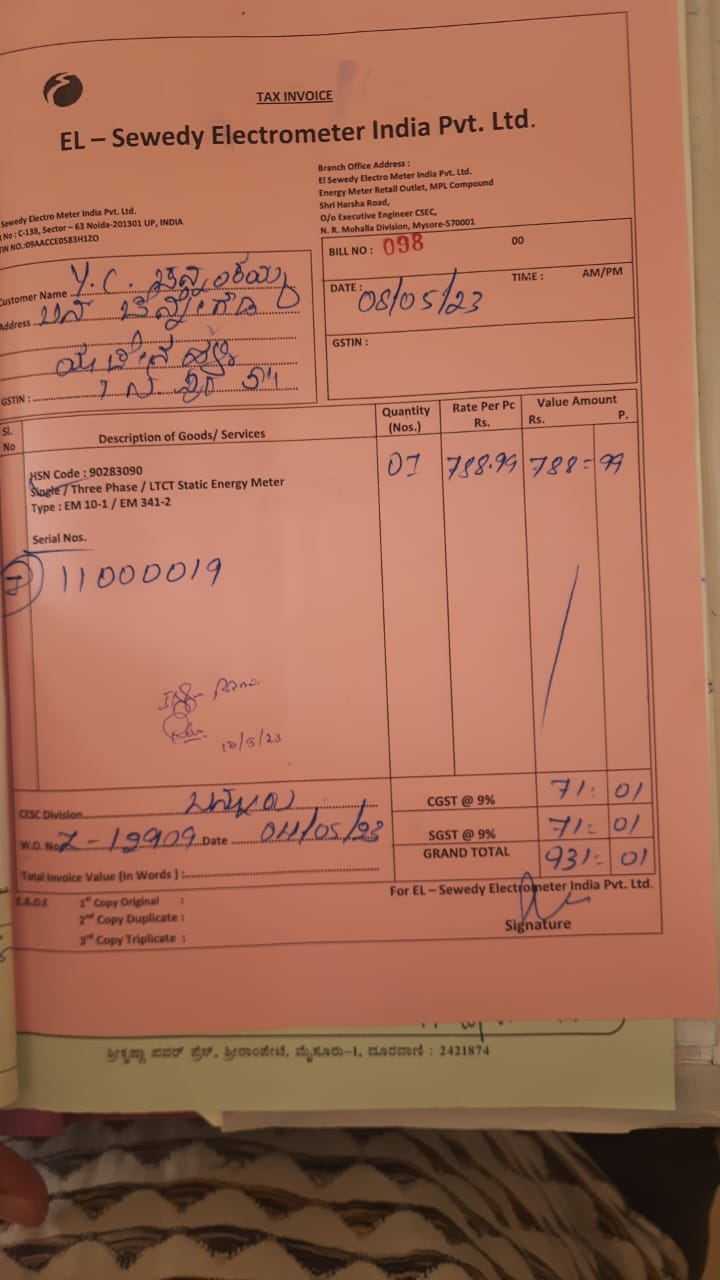 TAX INVOICE
EL – Sewedy Electrometer India Pvt. Ltd.
Sewedy Electro Meter India Pvt. Ltd.
No : C-138, Sector – 63 Noida-201301 UP, INDIA
TIN NO.:09AACCE0583H1ZO
Branch Office Address :
El Sewedy Electro Meter India Pvt. Ltd.
Energy Meter Retail Outlet, MPL Compound
Shri Harsha Road,
O/o Executive Engineer CSEC,
N. R. Mohalla Division, Mysore-570001
BILL NO : 098 00
DATE : 08/05/23 TIME : AM/PM
GSTIN :
Customer Name Y.C.
Address
GSTIN :
Sl. No Description of Goods/ Services Quantity (Nos.) Rate Per Pc Rs. Value Amount Rs. P.
HSN Code : 90283090 01 788.99 788=99
Single / Three Phase / LTCT Static Energy Meter
Type : EM 10-1 / EM 341-2
Serial Nos.
11000019
10/5/23
CESC Division
W.O. No Z-12909 Date 04/05/23
Total Invoice Value (In Words ) :
CGST @ 9% 71: 01
SGST @ 9% 71: 01
GRAND TOTAL 931: 01
For EL – Sewedy Electrometer India Pvt. Ltd.
Signature
E.&.O.E 1st Copy Original :
2nd Copy Duplicate :
3rd Copy Triplicate :
ಶ್ರೀಕೃಷ್ಣಾ ಪವರ್ ಪ್ರೆಸ್, ಶ್ರೀರಾಂಪೇಟೆ, ಮೈಸೂರು-1, ದೂರವಾಣಿ : 2421874